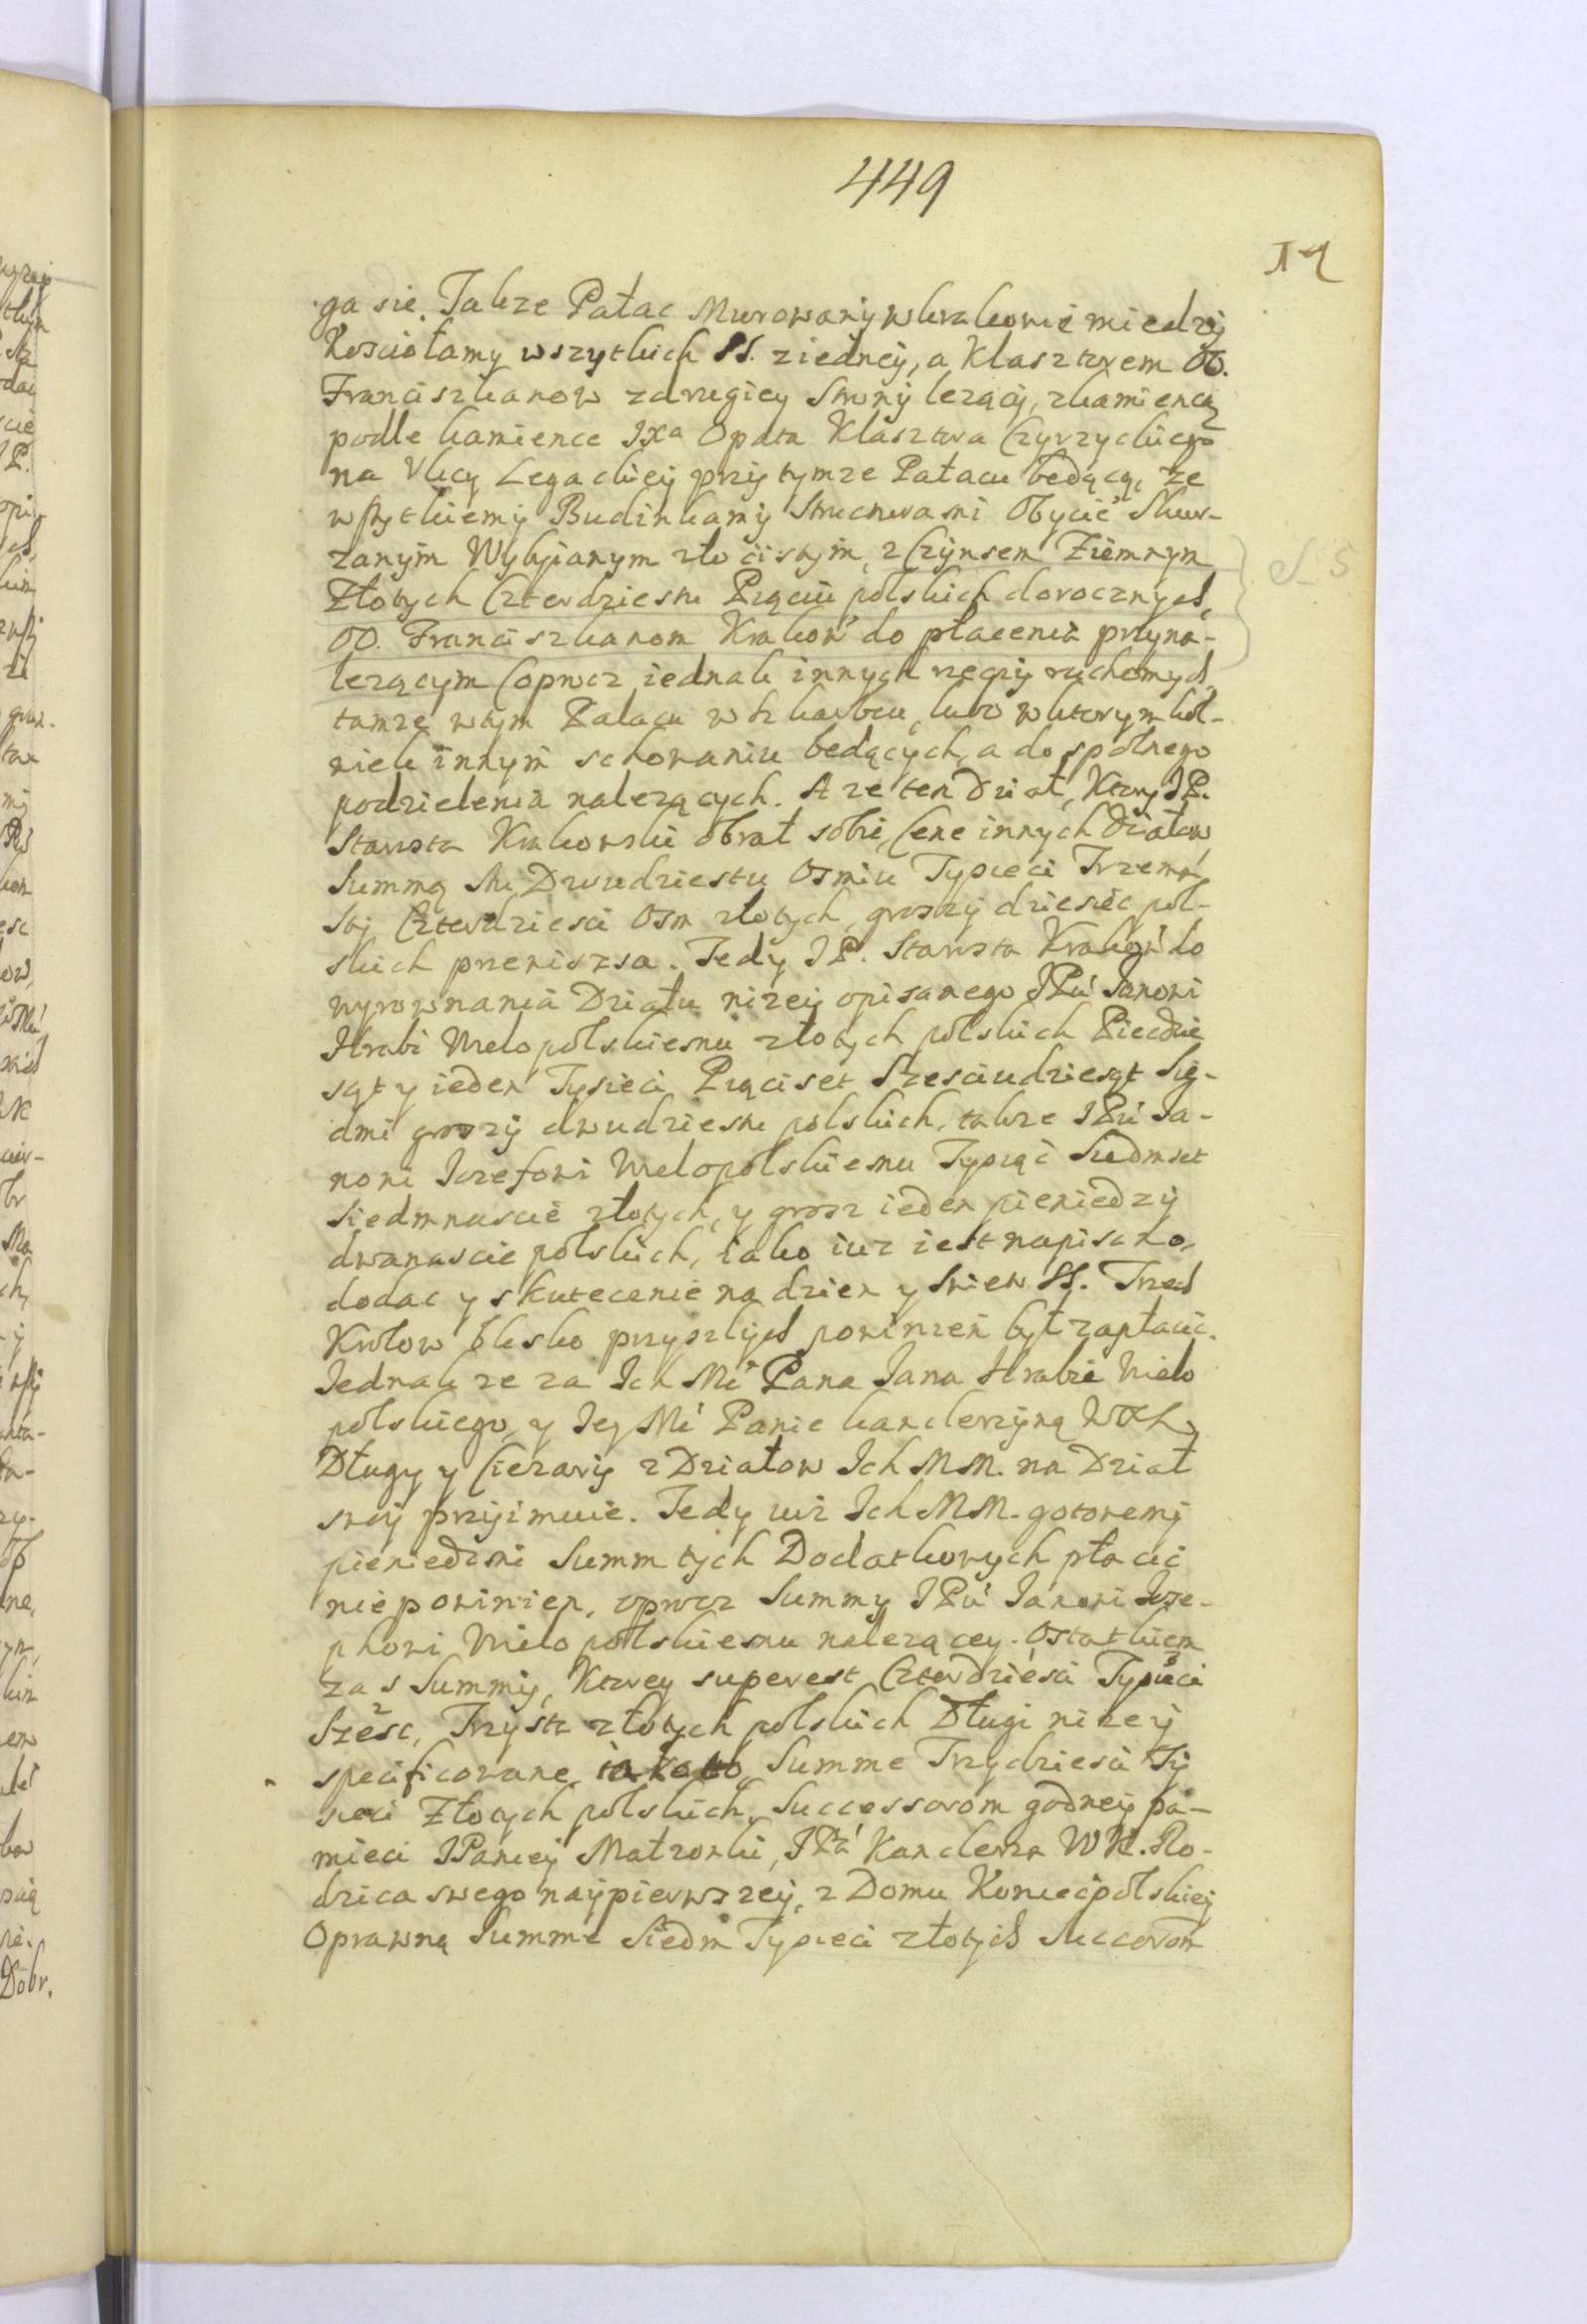 449
14
ga sie. Takze Pałac Murowany w krakowie miedzy
Kosciołamy wszytkich SS. ziedney, a Klasztorem OO.
Franciszkanow zdrugiey Strony lezący, zkamienicą
podle kamience IXa Opata Klasztora Czyrzyckiego
na Vlicy Legackiey przy tymze Pałacu będącą, ze
wszytkiemy Budinkamy Structurami Obycié Skur-
zanym Wybyianym złocistym, z Czynsem Ziemnym
Złotych Czterdziestu Piąciu polskich dorocznych,
OO. Franciszkanom Krakow do płacenia przyna-
lezącym (oprocz iednak innych rzeczy ruchomych,
tamze wtym Pałacu w skarbcu, lubo w ktorym kol-
niek innym schowaniu będących, a do społnego
podzielenia nalezących. A ze ten Dział, Ktory JP.
Starosta Krakowski obrał sobie, Cene innych Działow,
Summą Stu Dwudziestu Osmiu Tysieci Trzema
Sty Czterdziesci Osm złotych, groszy dziesiec pol-
skich przeniszsa. Tedy JP. Starosta Krakow do
wyrownania Działu nizey opisanego JPu Janowi
Hrabi Wielopolskiemu złotych polskich Piecdzie
sąt y ieden Tysieci Piąciset Szesciudziesąt Sie-
dmi groszy dwudziestu polskich, takze JPu Ja-
nowi Jozefowi Wielopolskiemu Tysiąc Siedmset
Siedmnascie złotych, y grosz ieden pieniedzy
dwanascie polskich, iako iuz iest napisano,
dodac y skutecznie na dzien y Swiew SS. Trzech
Krolow blisko przyszlych powinien był zapłacic.
Jednak ze za Ich Mć Pana Jana Hrabie Wielo
polskiego, y Jey Mć Panie kanclerzyną WK,
Długy y Ciezary z Działow Ich MM. na Dział
swoy przyimuie. Tedy iuz Ich MM. gotowemy
pieniedzmi Summ tych Dodatkowych płacic
nie powinien, oprocz Summy JPu Janowi Joze-
phowi Wielopolskiemu nalezącey. Ostatkiem
zas Summy, Ktorey superest Czterdziesci Tysieci
Szesc, Trzysta złotych polskich Długi nizey
specificowane, iako to Summe Trzydziesci Ty
sieci Złotych polskich, Successorom godney pa-
mieci JPaniey Matzonki, JPa Kanclerza WK. Ro-
dzica swego naypierwszey, z Domu Koniecpolskiey
Oprawną Summe Siedm Tysieci złotych Succorom